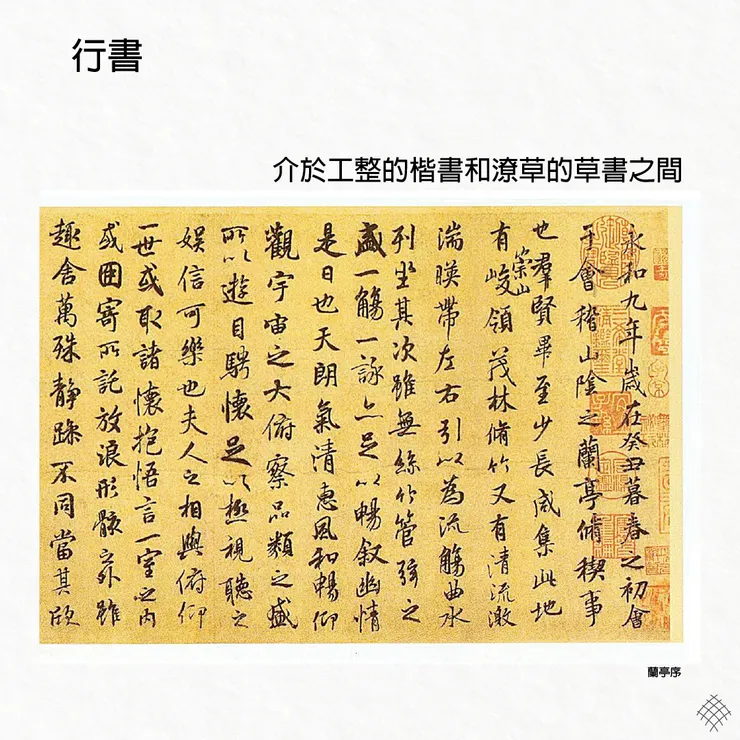 行書
介於工整的楷書和潦草的草書之間
永和九年歲在癸丑暮春之初會
于會稽山陰之蘭亭脩稧事
也羣賢畢至少長咸集此地
有崇山峻領茂林脩竹又有清流激
湍暎帶左右引以為流觴曲水
列坐其次雖無絲竹管弦之
盛一觴一詠亦足以暢敘幽情
是日也天朗氣清惠風和暢仰
觀宇宙之大俯察品類之盛
所以遊目騁懷足以極視聽之
娛信可樂也夫人之相與俯仰
一世或取諸懷抱悟言一室之內
或因寄所託放浪形骸之外雖
趣舍萬殊靜躁不同當其欣
蘭亭序